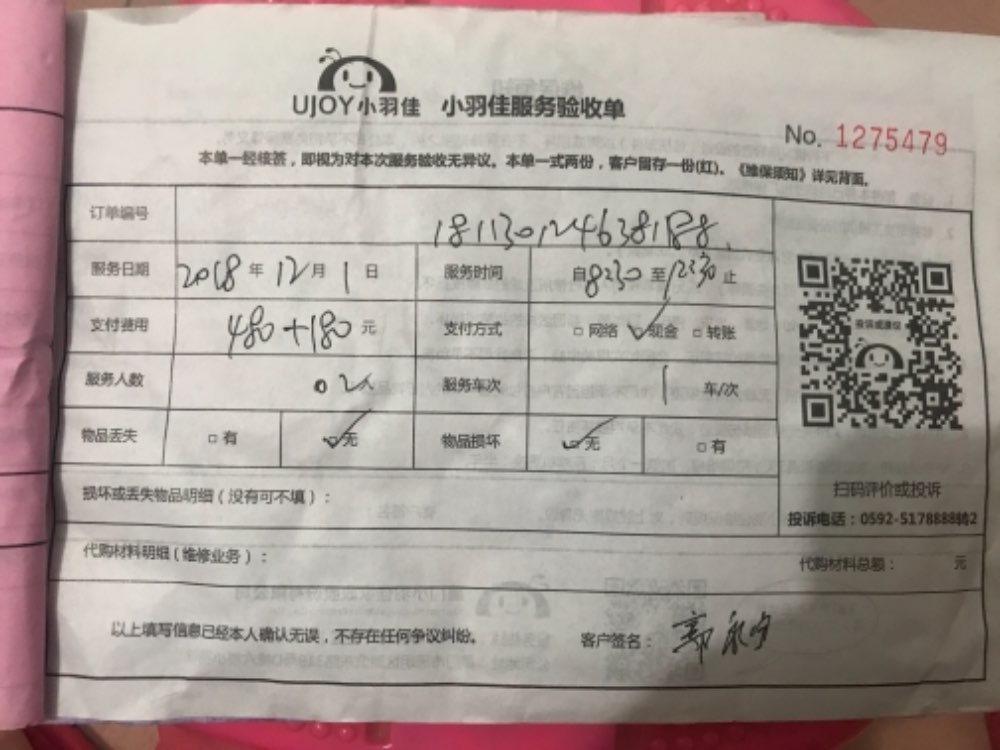 UJOY小羽佳 小羽佳服务验收单
No. 1275479
本单一经核签，即视为对本次服务验收无异议。本单一式两份，客户留存一份(红)。《维保须知》详见背面。
订单编号
服务日期 2018年12月1日 服务时间 自8:30至12:30止
支付费用 480+180元 支付方式 □网络 ☑现金 □转账
服务人数 2人 服务车次 1 车/次
物品丢失 □有 ☑无 物品损坏 ☑无 □有
投诉或建议
损坏或丢失物品明细（没有可不填）：
扫码评价或投诉
投诉电话：0592-5178888转2
代购材料明细（维修业务）：
代购材料总额： 元
以上填写信息已经本人确认无误，不存在任何争议纠纷。 客户签名：